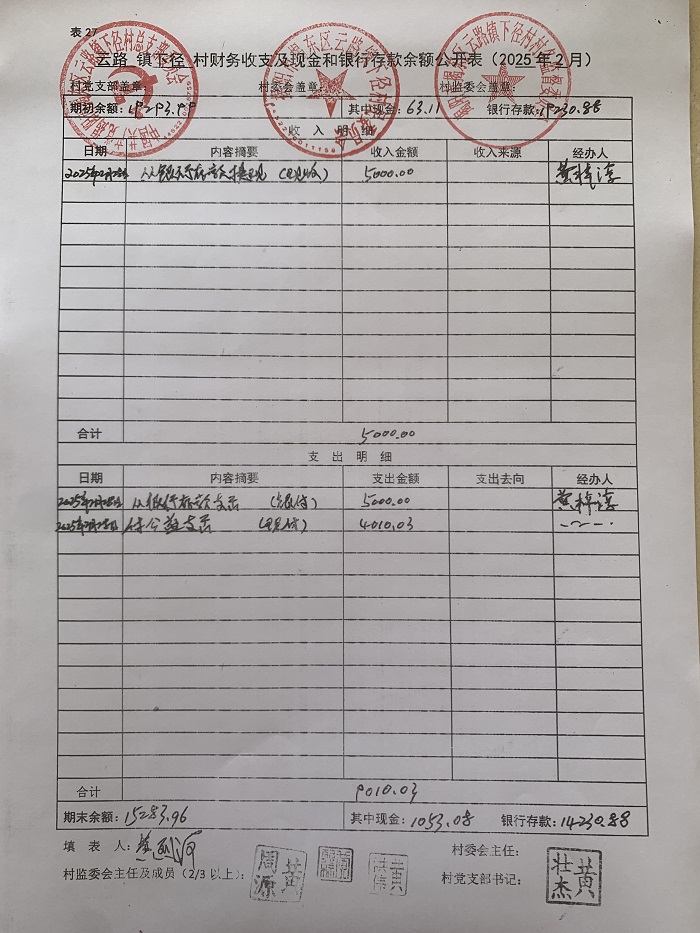 表 27
云路 镇 下径 村财务收支及现金和银行存款余额公开表（2025 年 2 月）
村党支部盖章： 村委会盖章： 村监委会盖章：
期初余额：19293.99 其中现金：63.11 银行存款：19230.88
收 入 明 细
日期 内容摘要 收入金额 收入来源 经办人
2025年2月28日 从银行存款提现 (现收) 5000.00 黄梓淳
合计 5000.00
支 出 明 细
日期 内容摘要 支出金额 支出去向 经办人
2025年2月28日 从银行存款支出 (银付) 5000.00 黄梓淳
2025年2月28日 付公益支出 (现付) 4010.03
合计 9010.03
期末余额：15283.96 其中现金：1053.08 银行存款：14230.88
填 表 人：黄 村委会主任：
村监委会主任及成员（2/3 以上）： 黄周源 村党支部书记： 黄壮杰